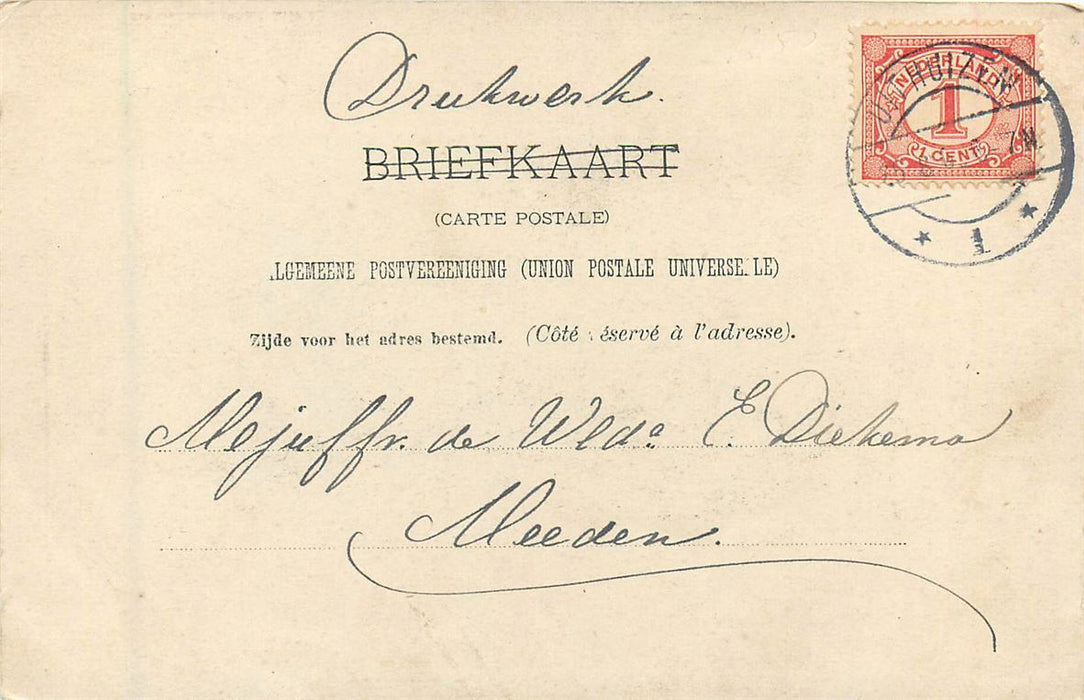 Drukwerk.
BRIEFKAART
(CARTE POSTALE)
LGEMEENE POSTVEREENIGING (UNION POSTALE UNIVERSE LE)
Zijde voor het adres bestemd. (Côté éservé à l'adresse).
Mejuffr. de Wed^a E. Diekema
Meeden.
NEDERLAND
1
1 CENT
UITHUIZEN
7N
1